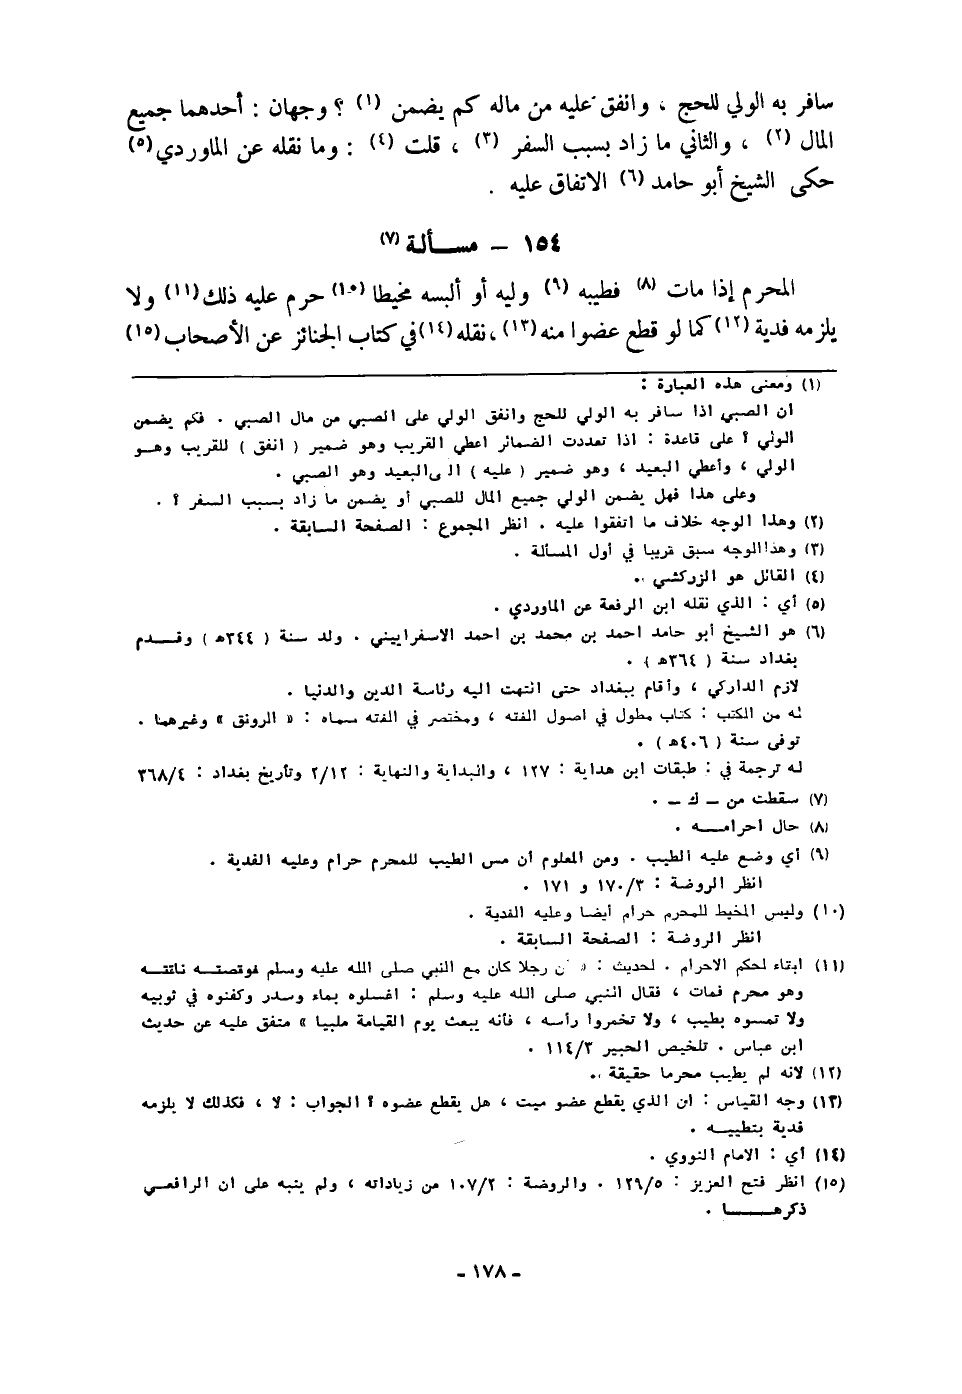 سافر به الولي للحج ، وانفق عليه من ماله كم يضمن (١) ؟ وجهان : أحدهما جميع
المال (٢) ، والثاني ما زاد بسبب السفر (٣) ، قلت (٤) : وما نقله عن الماوردي (٥)
حكى الشيخ أبو حامد (٦) الاتفاق عليه .
١٥٤ – مسـألة (٧)
المحرم إذا مات (٨) فطيبه (٩) وليه أو ألبسه مخيطا (١٠) حرم عليه ذلك (١١) ولا
يلزمه فدية (١٢) كما لو قطع عضوا منه (١٣) ، نقله (١٤) في كتاب الجنائز عن الأصحاب (١٥)
(١) ومعنى هذه العبارة :
أن الصبي اذا سافر به الولي للحج وانفق الولي على الصبي من مال الصبي . فكم يضمن
الولي ؟ على قاعدة : اذا تعددت الضمائر اعطي القريب وهو ضمير ( انفق ) للقريب وهـو
الولي ، وأعطي البعيد ، وهو ضمير ( عليه ) الى البعيد وهو الصبي .
وعلى هذا فهل يضمن الولي جميع المال للصبي أو يضمن ما زاد بسبب السفر ؟ .
(٢) وهذا الوجه خلاف ما اتفقوا عليه . انظر المجموع : الصفحة السابقة .
(٣) وهذا الوجه سبق قريبا في أول المسألة .
(٤) القائل هو الزركشي .
(٥) أي : الذي نقله ابن الرفعة عن الماوردي .
(٦) هو الشيخ أبو حامد احمد بن محمد بن احمد الاسفراييني . ولد سنة ( ٣٤٤هـ ) وقـدم
بغداد سنة ( ٣٦٤هـ ) .
لازم الداركي ، وأقام ببغداد حتى انتهت اليه رئاسة الدين والدنيا .
له من الكتب : كتاب مطول في اصول الفقه ، ومختصر في الفقه سماه : « الرونق » وغيرهما .
توفى سنة ( ٤٠٦هـ ) .
له ترجمة في : طبقات ابن هداية : ١٢٧ ، والبداية والنهاية : ٢/١٢ وتأريخ بغداد : ٣٦٨/٤
(٧) سقطت من – ك – .
(٨) حال احرامـه .
(٩) أي وضع عليه الطيب . ومن المعلوم أن مس الطيب للمحرم حرام وعليه الفدية .
انظر الروضة : ١٧٠/٣ و ١٧١ .
(١٠) وليس المخيط للمحرم حرام أيضا وعليه الفدية .
انظر الروضة : الصفحة السابقة .
(١١) ابقاء لحكم الاحرام . لحديث : « أن رجلا كان مع النبي صلى الله عليه وسلم فوقصتـه ناقتـه
وهو محرم فمات ، فقال النبي صلى الله عليه وسلم : اغسلوه بماء وسدر وكفنوه في ثوبيه
ولا تمسوه بطيب ، ولا تخمروا رأسه ، فأنه يبعث يوم القيامة ملبيا » متفق عليه عن حديث
ابن عباس . تلخيص الحبير ١١٤/٣ .
(١٢) لانه لم يطيب محرما حقيقة .
(١٣) وجه القياس : ان الذي يقطع عضو ميت ، هل يقطع عضوه ؟ الجواب : لا ، فكذلك لا يلزمه
فدية بتطيبـه .
(١٤) أي : الامام النووي .
(١٥) انظر فتح العزيز : ١٢٩/٥ . والروضة : ١٠٧/٢ من زياداته ، ولم ينبه على ان الرافعـي
ذكرهـا .
- ١٧٨ -